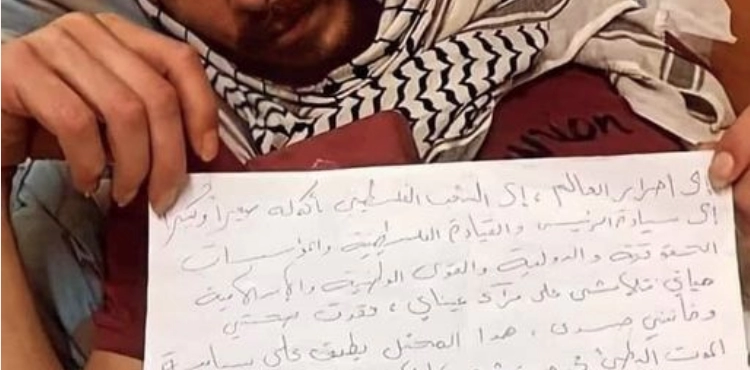 إلى احرار العالم، إلى الشعب الفلسطيني بأكمله صغيراً وكبيراً
إلى سيادة الرئيس والقيادة الفلسطينية والمؤسسات
الحقوقية والدولية والقوى الوطنية والإسلامية
حياتي تتلاشى على مرآى عيناي، فقدت صحتي
وخانني جسدي، هذا المحتل يطبق علي سياسة
الموت البطيء